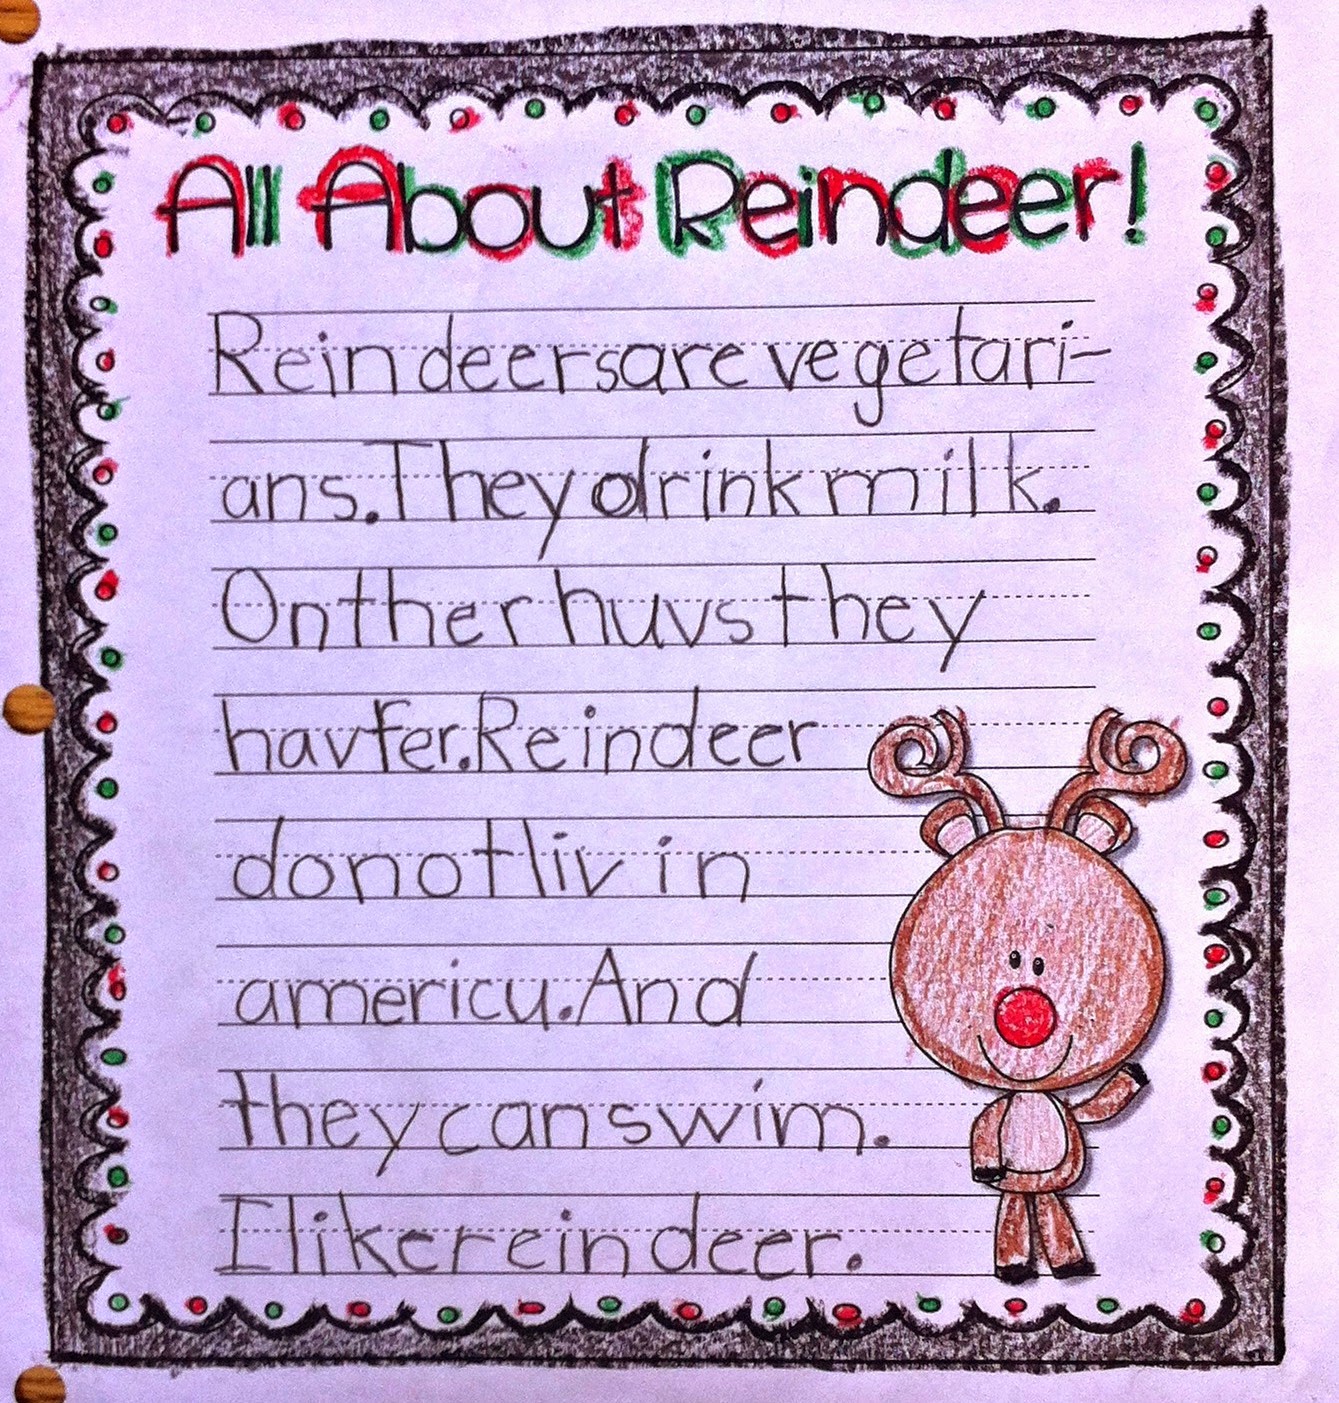 All About Reindeer!
Reindeers are vegetari-
ans. They drink milk.
On ther huvs they
hav fer. Reindeer
do not liv in
americu. And
they can swim.
I like reindeer.